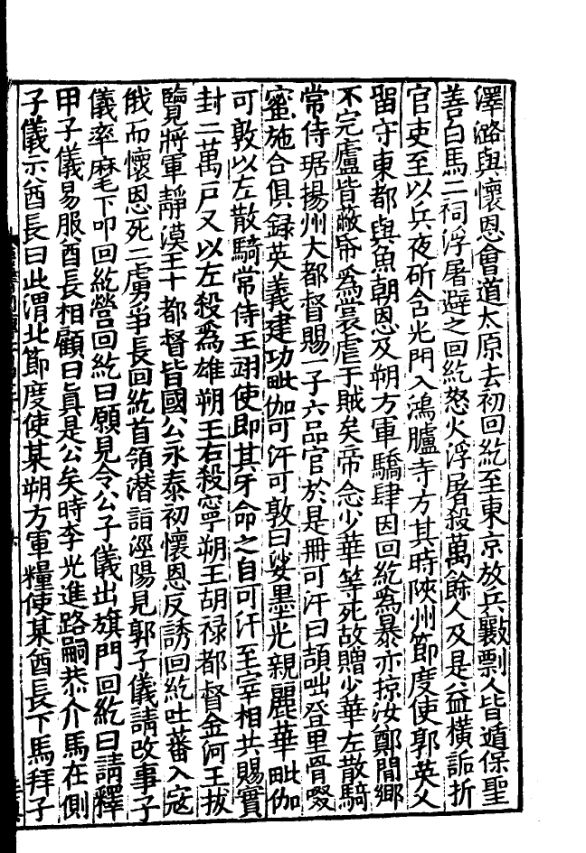 澤潞與懷恩會道太原去初回紇至東京放兵剽人皆遁保聖
善白馬二祠浮屠避之回紇怒火浮屠殺萬餘人及是益橫詬折
官吏至以兵夜斫含光門入鴻臚寺方其時陝州節度使郭英乂
留守東都與魚朝恩及朔方軍驕肆因回紇爲暴亦掠汝鄭間鄉
不完廬皆蔽帋爲裳虐于賊矣帝念少華等死故贈少華左散騎
常侍琚揚州大都督賜一子六品官於是冊可汗曰頡咄登里骨啜
蜜施合俱録英義建功毗伽可汗可敦曰娑墨光親麗華毗伽
可敦以左散騎常侍王翊使即其牙命之自可汗至宰相共賜實
封二萬戸又以左殺爲雄朔王右殺寧朔王胡禄都督金河王拔
覽將軍靜漠王十都督皆國公永泰初懷恩反誘回紇吐蕃入寇
俄而懷恩死二虜爭長回紇首領潛詣涇陽見郭子儀請改事子
儀率麾下叩回紇營回紇曰願見令公子儀出旗門回紇曰請釋
甲子儀易服酋長相顧曰真是公矣時李光進路嗣恭介馬在側
子儀示酋長曰此渭北節度使某朔方軍糧使某酋長下馬拜子